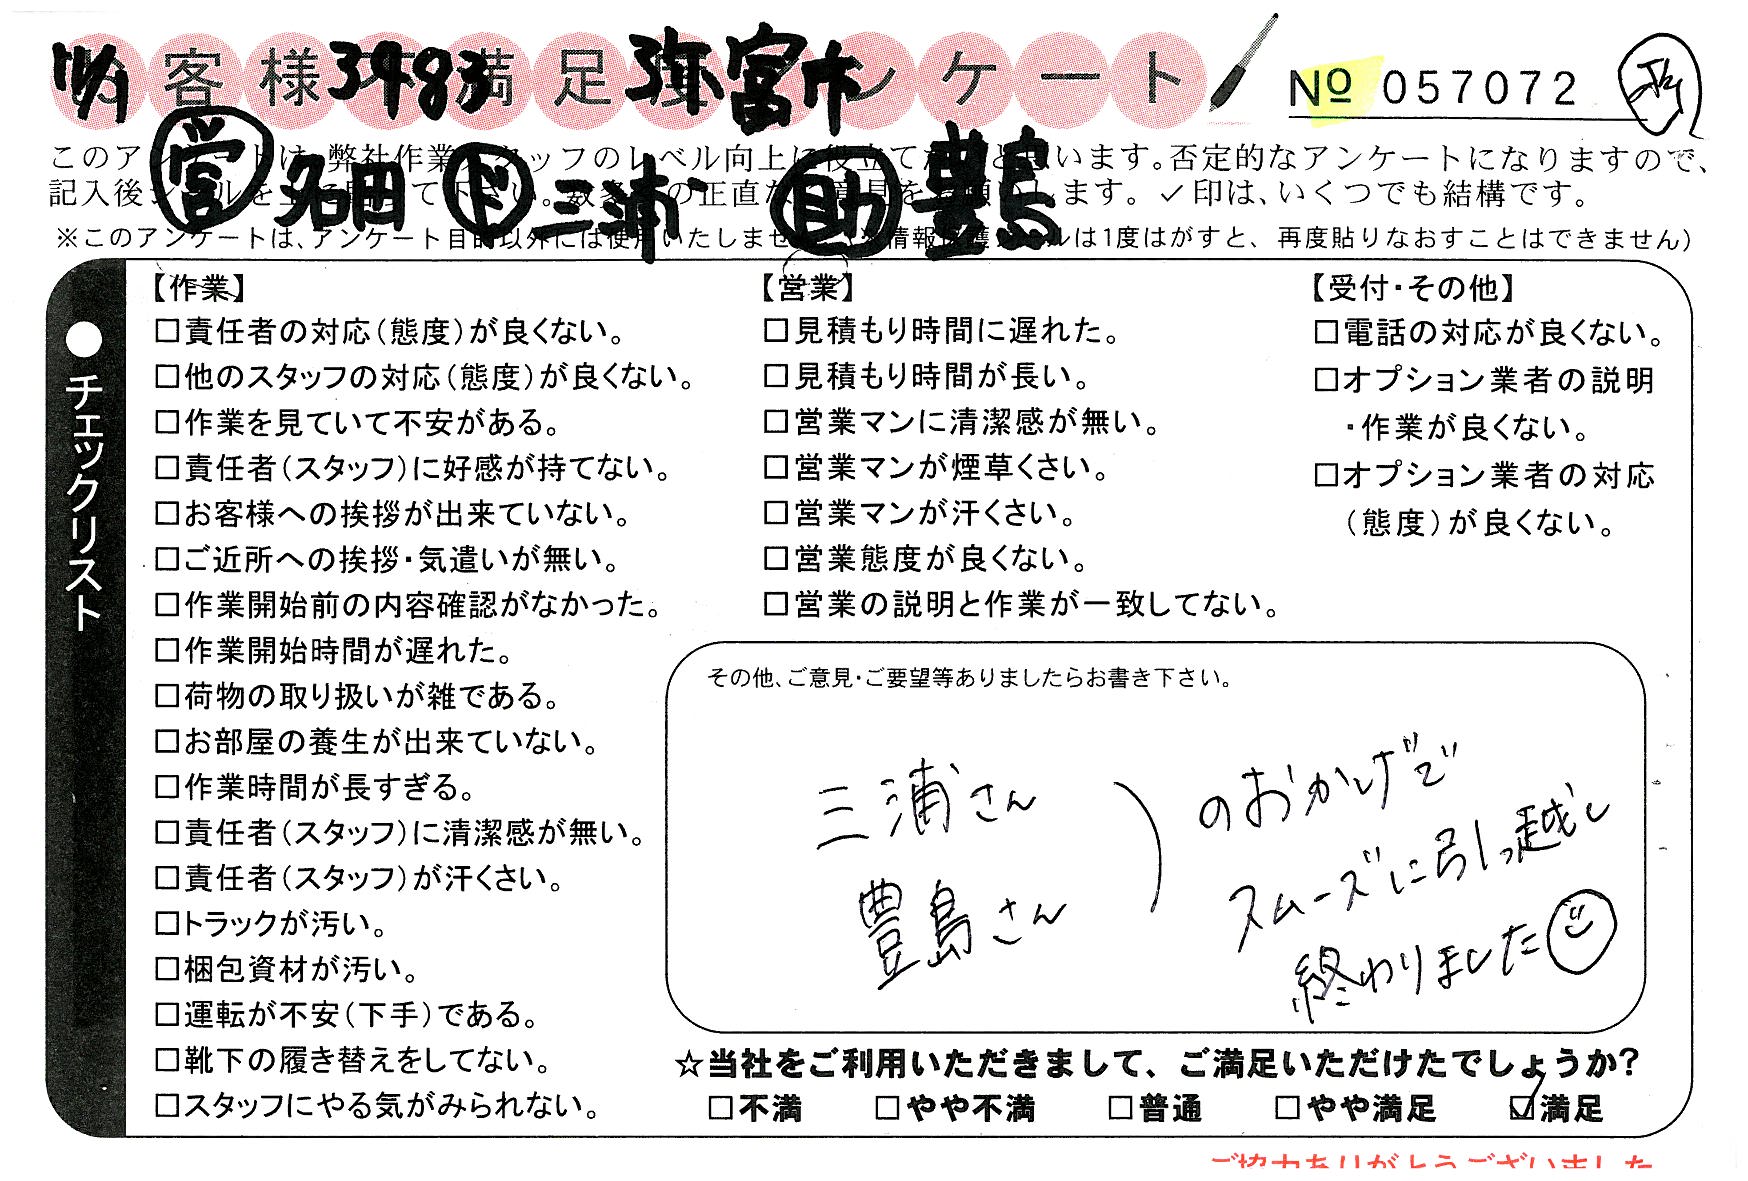 客様 3983 満足 弥富市 ンケート No 057072
営 名田 ド 三浦 助 豊島
このアンケートは、弊社作業スタッフのレベル向上に役立てたいと思います。否定的なアンケートになりますので、
記入後シールを上に貼って下さい。数多くの正直なご意見をお願いします。✓印は、いくつでも結構です。
※このアンケートは、アンケート目的以外には使用いたしません。(※情報保護シールは1度はがすと、再度貼りなおすことはできません)
●チェックリスト
【作業】
□責任者の対応(態度)が良くない。
□他のスタッフの対応(態度)が良くない。
□作業を見ていて不安がある。
□責任者(スタッフ)に好感が持てない。
□お客様への挨拶が出来ていない。
□ご近所への挨拶・気遣いが無い。
□作業開始前の内容確認がなかった。
□作業開始時間が遅れた。
□荷物の取り扱いが雑である。
□お部屋の養生が出来ていない。
□作業時間が長すぎる。
□責任者(スタッフ)に清潔感が無い。
□責任者(スタッフ)が汗くさい。
□トラックが汚い。
□梱包資材が汚い。
□運転が不安(下手)である。
□靴下の履き替えをしてない。
□スタッフにやる気がみられない。
【営業】
□見積もり時間に遅れた。
□見積もり時間が長い。
□営業マンに清潔感が無い。
□営業マンが煙草くさい。
□営業マンが汗くさい。
□営業態度が良くない。
□営業の説明と作業が一致してない。
【受付・その他】
□電話の対応が良くない。
□オプション業者の説明
・作業が良くない。
□オプション業者の対応
(態度)が良くない。
その他、ご意見・ご要望等ありましたらお書き下さい。
三浦さん
豊島さん
のおかげで
スムーズに引っ越し
終わりました
☆当社をご利用いただきまして、ご満足いただけたでしょうか?
□不満 □やや不満 □普通 □やや満足 ☑満足
ご協力ありがとうございました